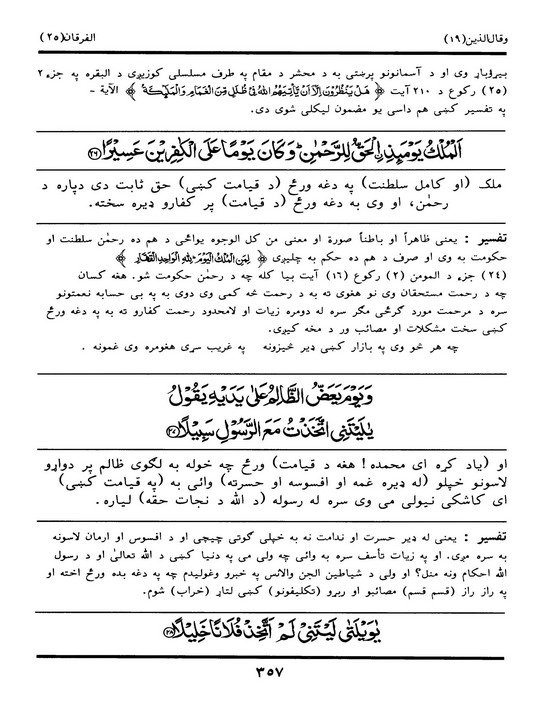 وقال‌الذین (۱۹) الفرقان (۲۵)
بیرؤبار وی او د آسمانونو پرښتی به د محشر د مقام په طرف مسلسلی کوزیږی د البقره په جزء ۲
(۲۵) رکوع د ۲۱۰ آیت ﴿ هَلْ يَنْظُرُوْنَ اِلَّا اَنْ يَّاْتِيَهُمُ اللّٰهُ فِيْ ظُلَلٍ مِّنَ الْغَمَامِ وَالْمَلٰٓئِكَةُ ﴾ الآیة -
په تفسیر کښی هم داسی یو مضمون لیکلی شوی دی.
اَلْمُلْكُ يَوْمَئِذِ اِلْحَقُّ لِلرَّحْمٰنِ ؕ وَكَانَ يَوْمًا عَلَى الْكٰفِرِيْنَ عَسِيْرًا ﴿۲۶﴾
ملک (او کامل سلطنت) په دغه ورځ (د قیامت کښی) حق ثابت دی دپاره د
رحمٰن، او وی به دغه ورځ (د قیامت) پر کفارو ډیره سخته.
تفسیر : یعنی ظاهراً او باطناً صورة او معنی من کل الوجوه یوائحی د هم ده رحمٰن سلطنت او
حکومت به وی او صرف د هم ده حکم به چلیږی ﴿ لِمَنِ الْمُلْكُ الْيَوْمَ لِلّٰهِ الْوَاحِدِ الْقَهَّارِ ﴾
(۲۴) جزء د المومن (۲) رکوع (۱۶) آیت بیا کله چه د رحمٰن حکومت شو. هغه کسان
چه د رحمت مستحقان وی نو هغوی ته به د رحمت څه کمی وی دوی به په بی حسابه نعمتونو
سره د مرحمت مورد ګرځی مګر سره له دومره زیات او لامحدود رحمت کفارو ته به په دغه ورځ
کښی سخت مشکلات او مصائب ور د مخه کیږی.
چه هر څو وی په بازار کښی ډیر څیزونه په غریب سړی هغومره وی غمونه .
وَيَوْمَ يَعَضُّ الظَّالِمُ عَلٰى يَدَيْهِ يَقُوْلُ
يٰلَيْتَنِى اتَّخَذْتُ مَعَ الرَّسُوْلِ سَبِيْلًا ﴿۲۷﴾
او (یاد کړه ای محمده! هغه د قیامت) ورځ چه خوله به لګوی ظالم پر دواړو
لاسونو خپلو (له ډیره غمه او افسوسه او حسرته) وائی به (په قیامت کښی)
ای کاشکی نیولی می وی سره له رسوله (د الله د نجات حقه) لیاره.
تفسیر : یعنی له ډیر حسرت او ندامت نه به خپلی ګوتی چیچی او د افسوس او ارمان لاسونه
به سره مږی. او په زیات تأسف سره به وائی چه ولی می په دنیا کښی د الله تعالیٰ او د رسول
الله احکام ونه منل؟ او ولی د شیاطین الجن والانس په خبرو وغولیدم چه په دغه بده ورځ اخته او
په راز راز (قسم قسم) مصائبو او ربړو (تکلیفونو) کښی لتاړ (خراب) شوم.
يٰوَيْلَتٰى لَيْتَنِىْ لَمْ اَتَّخِذْ فُلَانًا خَلِيْلًا ﴿۲۸﴾
۳۵۷